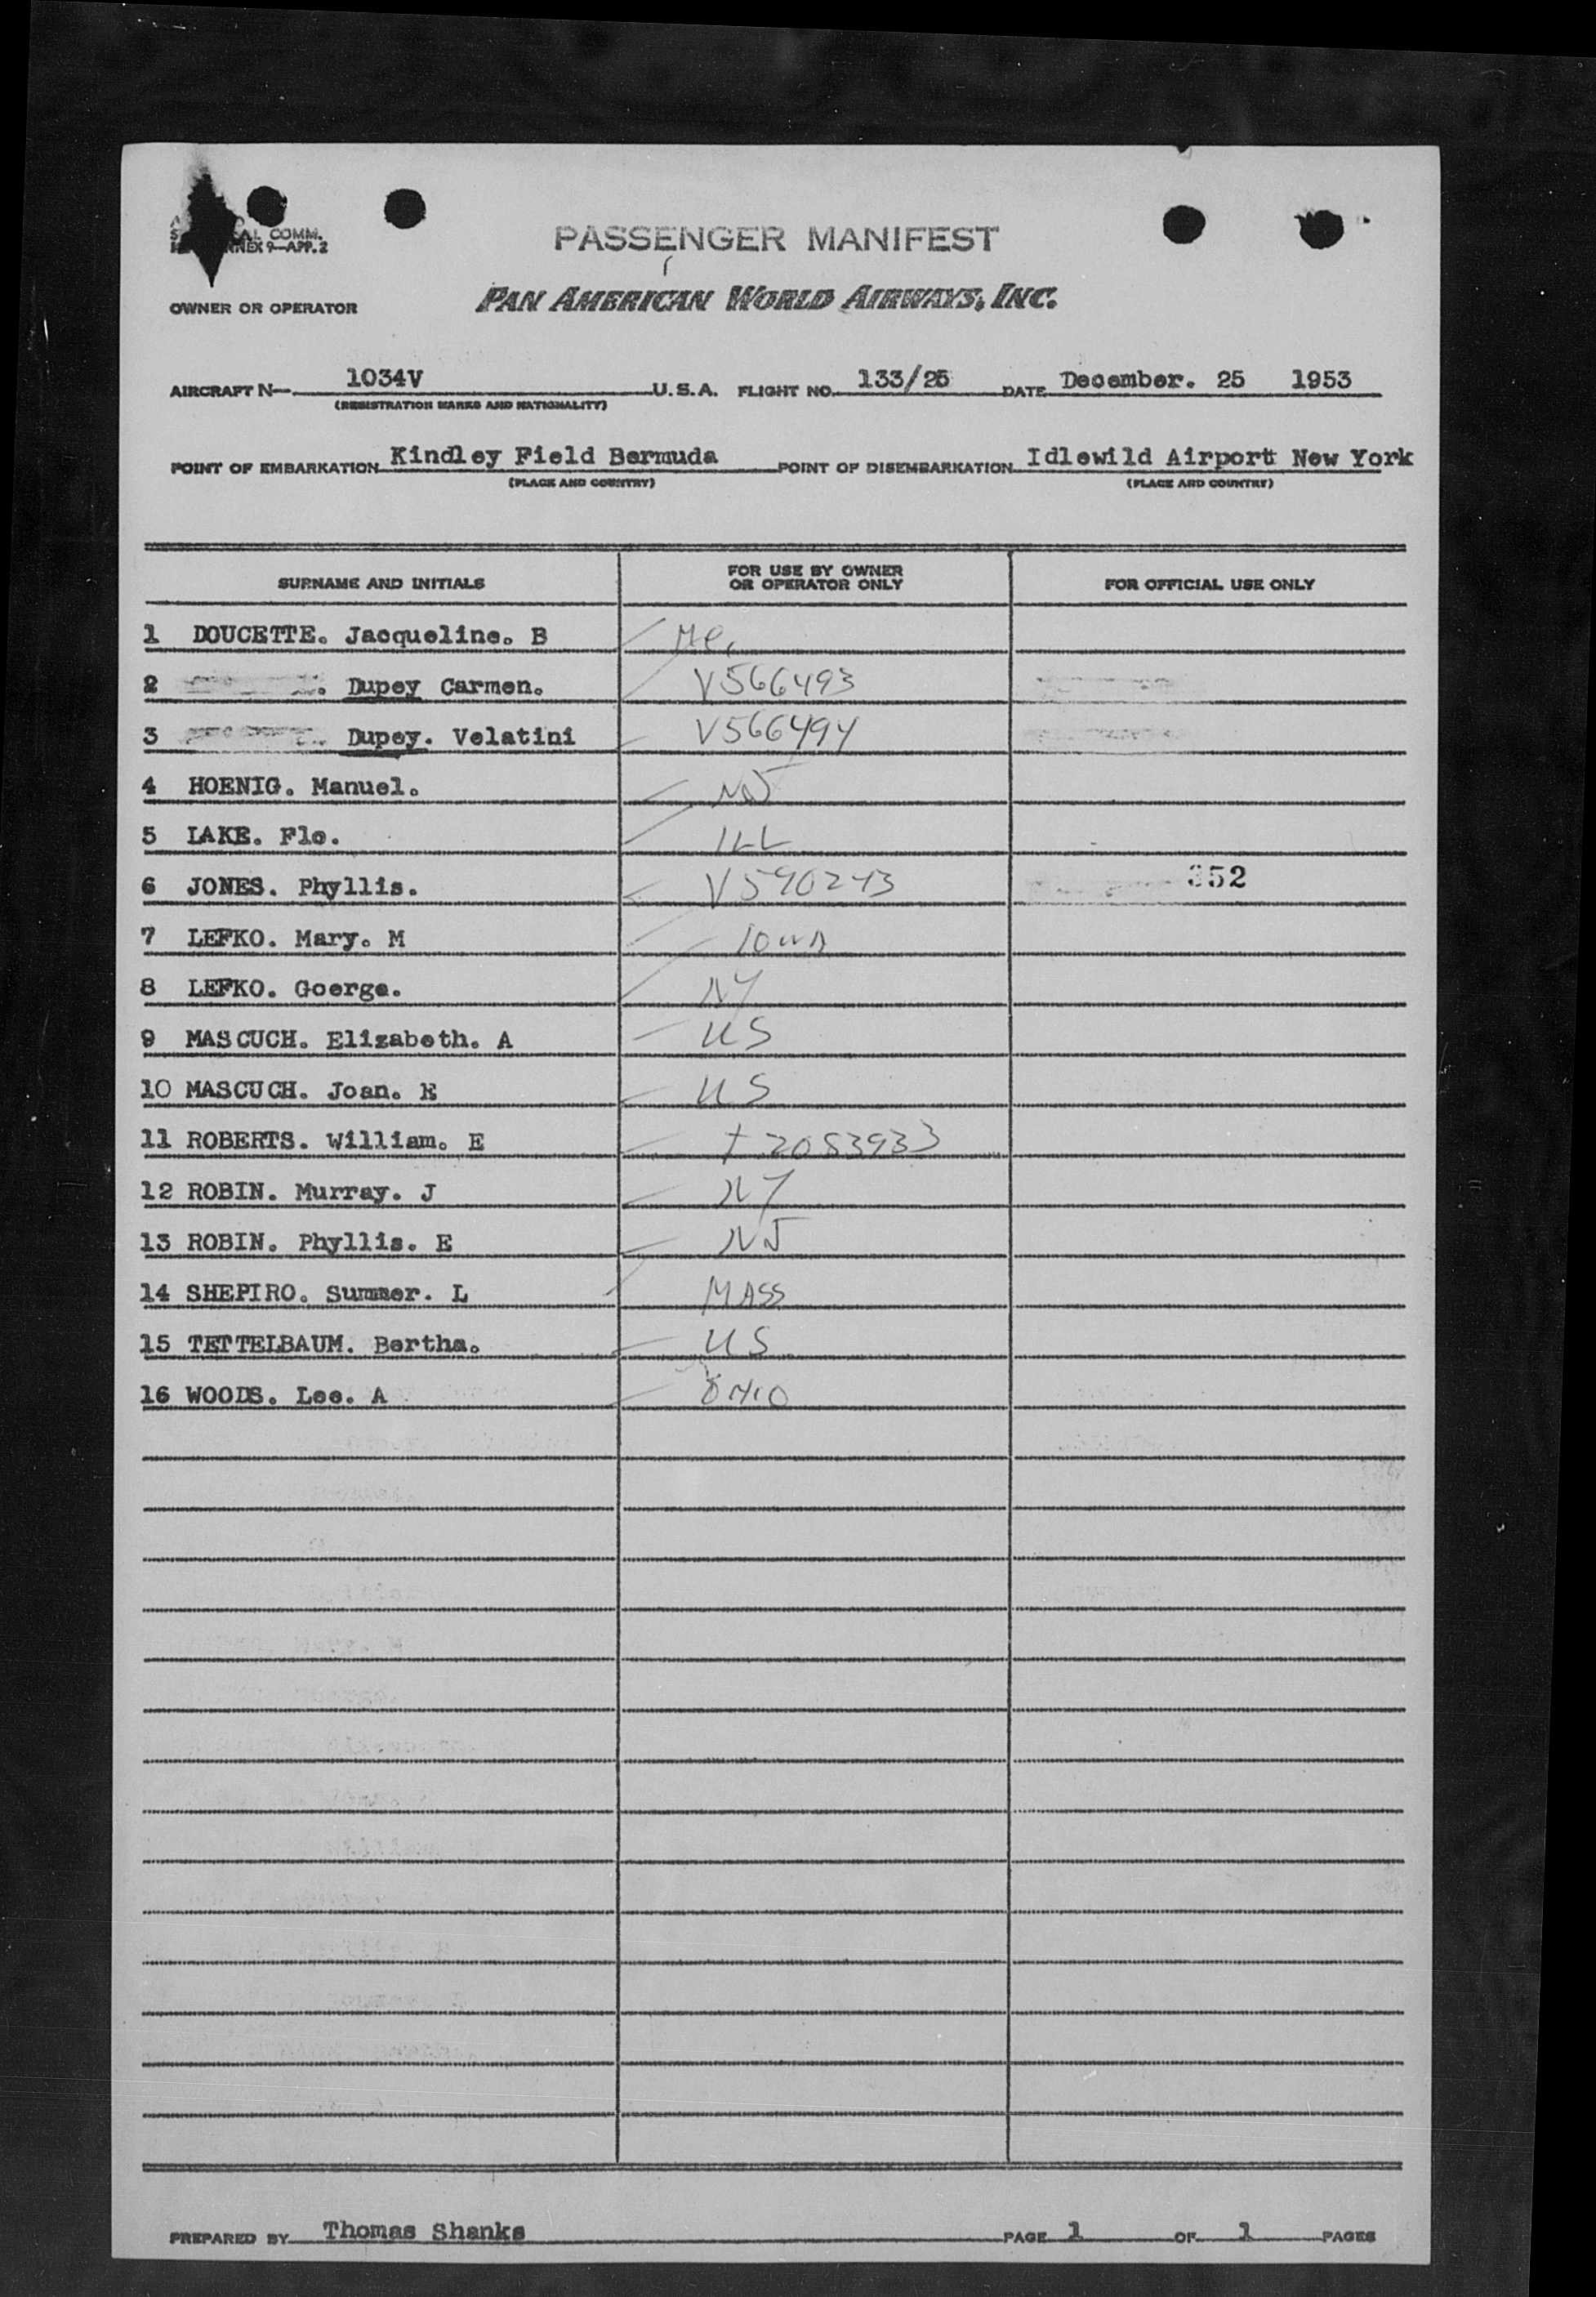 CAL COMM.
ANNEX 9—APP. 2
PASSENGER MANIFEST
OWNER OR OPERATOR PAN AMERICAN WORLD AIRWAYS, INC.
AIRCRAFT N— 1034V U.S.A. FLIGHT NO. 133/25 DATE December. 25 1953
(REGISTRATION MARKS AND NATIONALITY)
POINT OF EMBARKATION Kindley Field Bermuda POINT OF DISEMBARKATION Idlewild Airport New York
(PLACE AND COUNTRY) (PLACE AND COUNTRY)
SURNAME AND INITIALS FOR USE BY OWNER OR OPERATOR ONLY FOR OFFICIAL USE ONLY
1 DOUCETTE. Jacqueline. B Me.
2 . Dupey Carmen. V566493
3 Dupey. Velatini V566494
4 HOENIG. Manuel. NJ
5 LAKE. Flo. ILL
6 JONES. Phyllis. V590243 352
7 LEFKO. Mary. M Iowa
8 LEFKO. Goerge. NY
9 MASCUCH. Elizabeth. A US
10 MASCUCH. Joan. E US
11 ROBERTS. William. E 2083933
12 ROBIN. Murray. J NY
13 ROBIN. Phyllis. E NJ
14 SHEPIRO. Summer. L MASS
15 TETTELBAUM. Bertha. US
16 WOODS. Lee. A OHIO
PREPARED BY Thomas Shanks PAGE 1 OF 1 PAGES